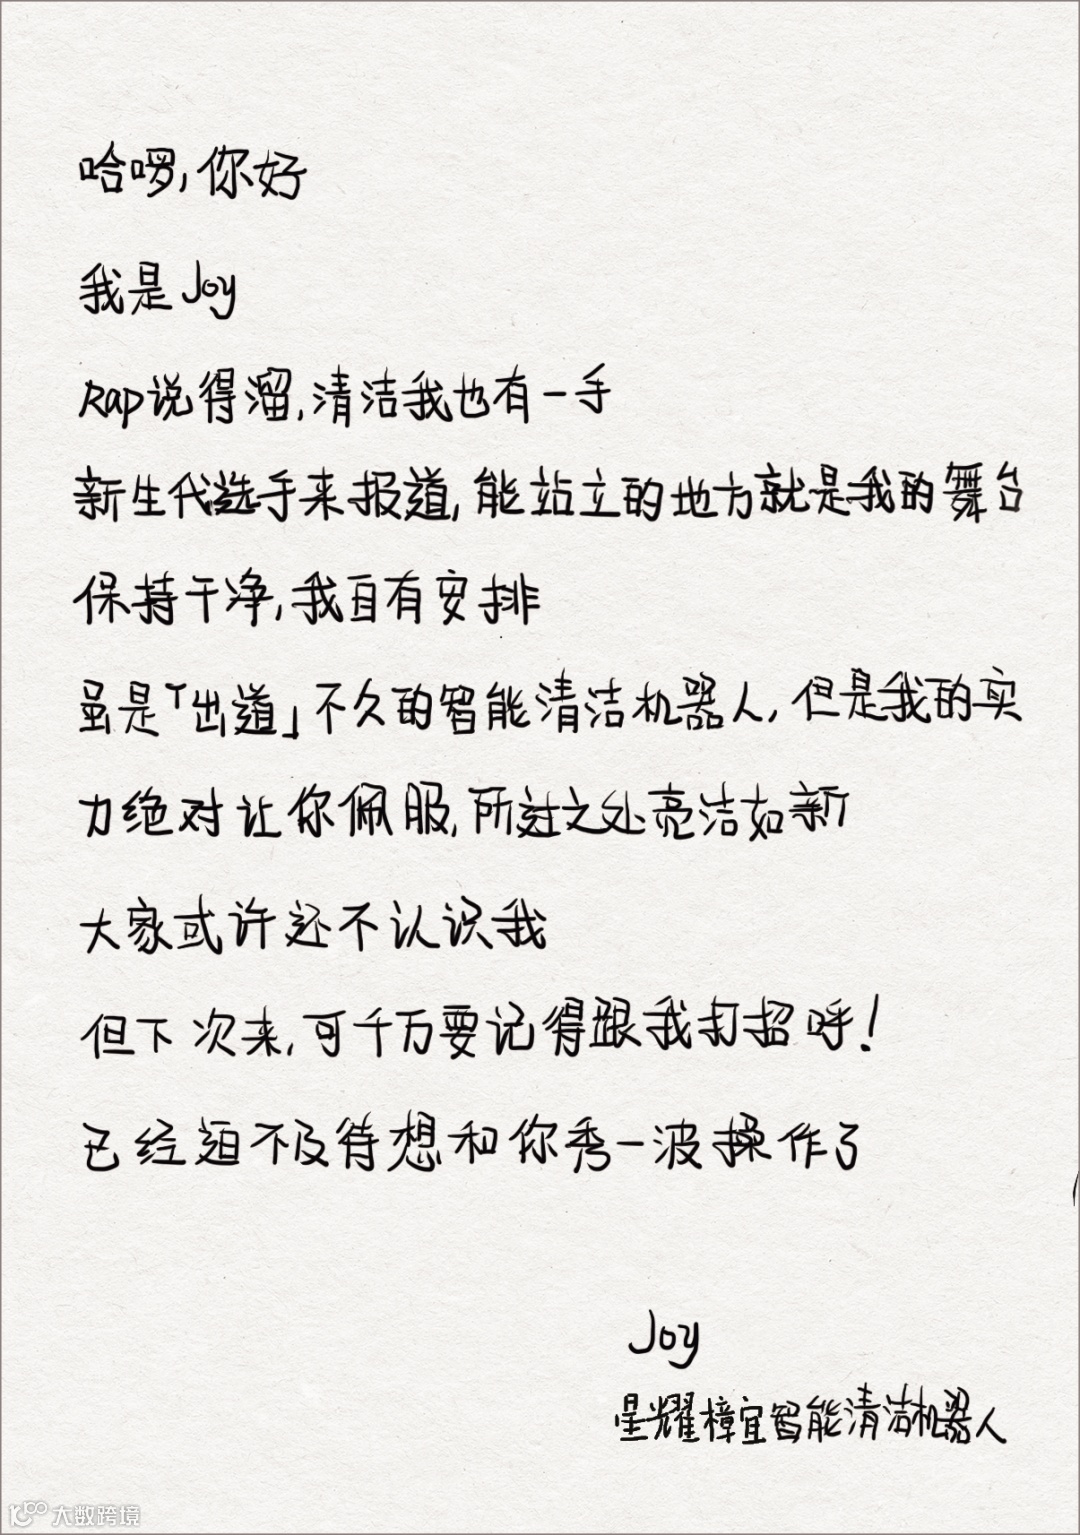 哈啰,你好
我是Joy
Rap说得溜,清洁我也有一手
新生代选手来报道,能站立的地方就是我的舞台
保持干净,我自有安排
虽是「出道」不久的智能清洁机器人,但是我的实
力绝对让你佩服,所过之处亮洁如新
大家或许还不认识我
但下次来,可千万要记得跟我打招呼!
已经迫不及待想和你秀一波操作了
Joy
星耀樟宜智能清洁机器人
大数跨境